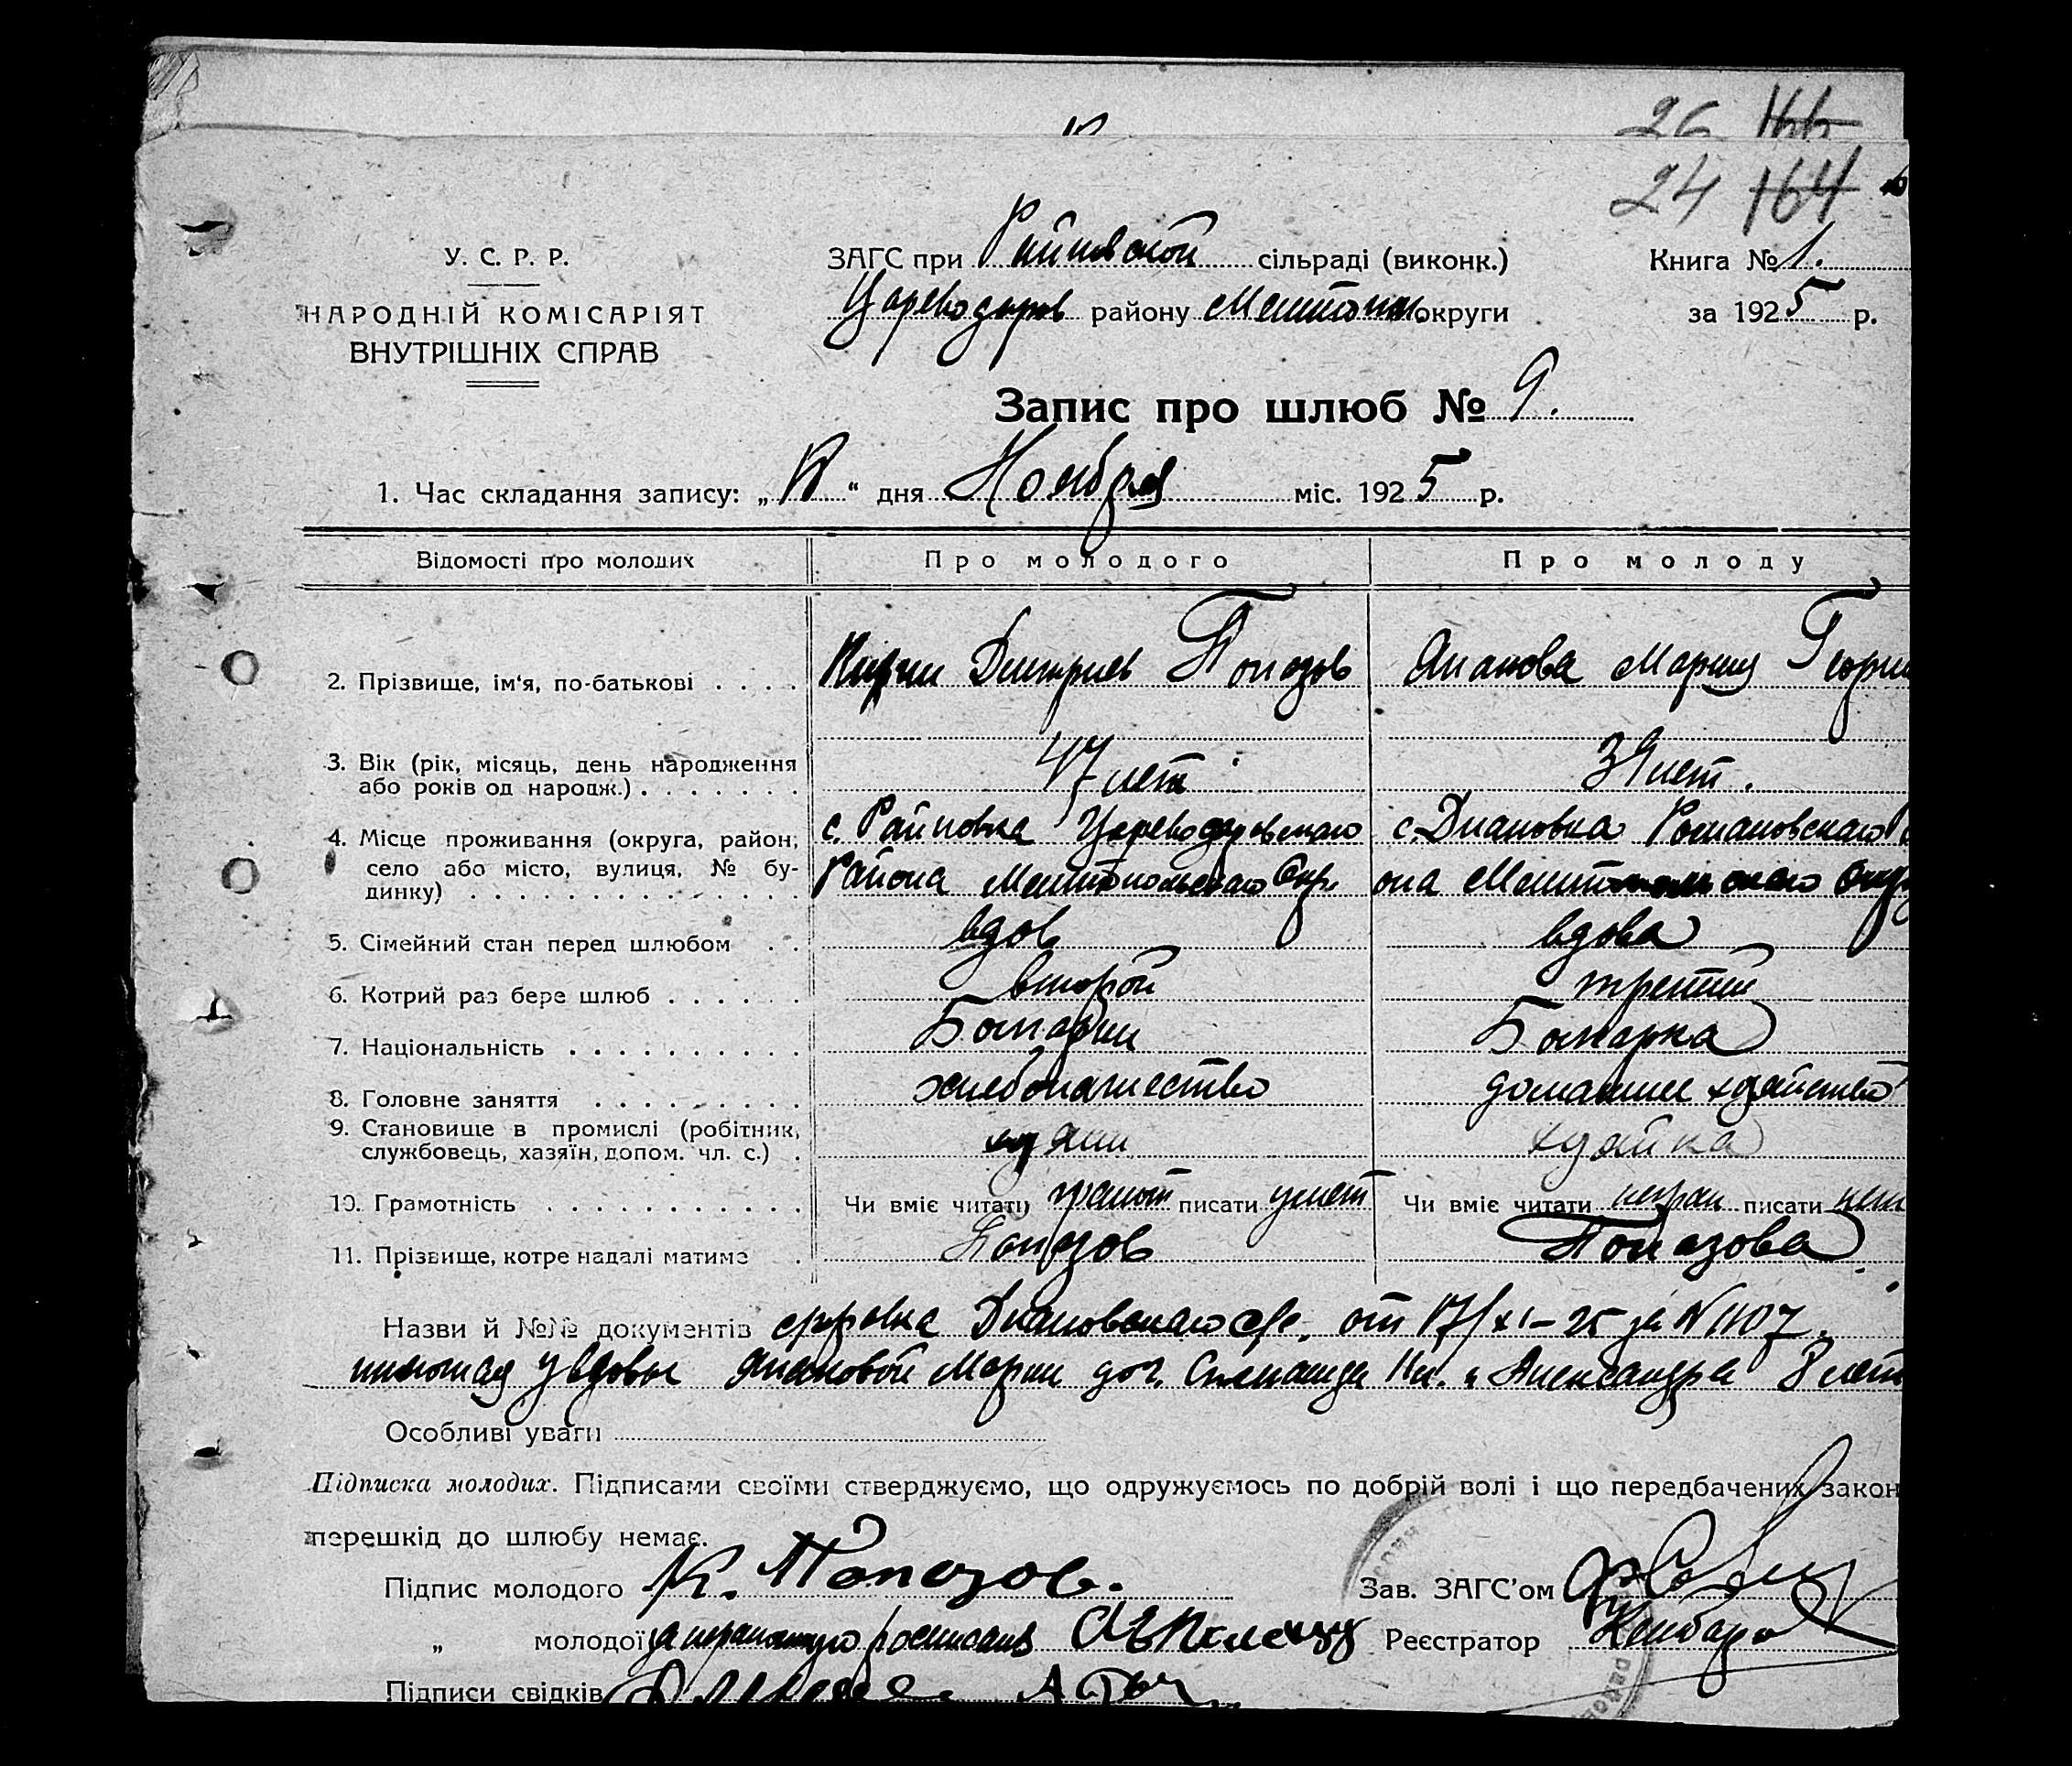 26 166
24 164
У. С. Р. Р.
НАРОДНІЙ КОМІСАРІЯТ
ВНУТРІШНІХ СПРАВ
ЗАГС при Райновской сільраді (виконк.)
Цареводаров району Мелитопол. округи
Книга № 1.
за 1925 р.
Запис про шлюб № 9.
1. Час складання запису: „ “ дня Ноября міс. 1925 р.
Відомості про молодих
Про молодого
Про молоду
2. Прізвище, ім'я, по-батькові
Кирил Дмитриев Попазов
Япанова Мария Георги
3. Вік (рік, місяць, день народження
або років од народж.)
47 лет
39 лет.
4. Місце проживання (округа, район,
село або місто, вулиця, № бу-
динку)
с. Райновка Цареводаровского
Района Мелитопольского Окр.
с. Диановка Романовскаго
она Мелитопольского Окр
5. Сімейний стан перед шлюбом
вдов
вдова
6. Котрий раз бере шлюб
второй
третий
7. Національність
Болгарин
Болгарка
8. Головне заняття
хлебопашество
домашнее хозяйство
9. Становище в промислі (робітник,
службовець, хазяїн, допом. чл. с.)
хозяин
хозяйка
10. Грамотність
Чи вміє читати грамот писати умеет
Чи вміє читати неграм писати нет
11. Прізвище, котре надалі матиме
Попазов
Попазова
Назви й №№ документів справка Диановского с/с. от 17/XI–25 за № 1107.
у вдовы Япановой Марии доч. и Александра 8 лет
Особливі уваги
Підписка молодих. Підписами своїми стверджуємо, що одружуємось по добрій волі і що передбачених закон
перешкід до шлюбу немає.
Підпис молодого К. Попазов.
Зав. ЗАГС'ом
„ молодої за неграмотную росписался
Реєстратор
Підписи свідків